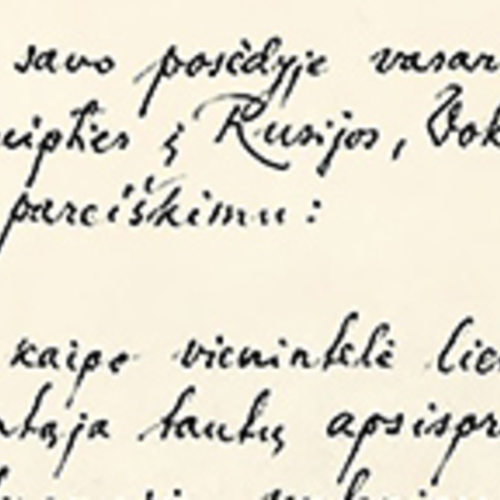 savo posėdyje vasar
eipties į Rusijos, Vok
pareiškimu:
kaipo vienintelė lie
ntąja tautų apsispr